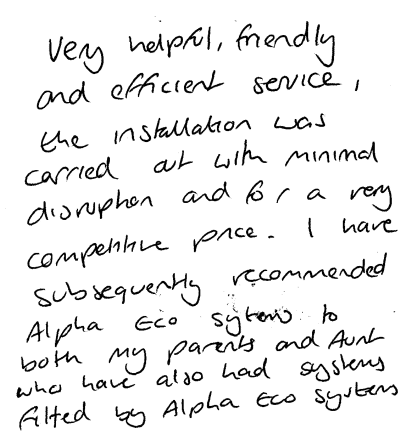 Very helpful, friendly
and efficient service,
the installation was
carried out with minimal
disruption and for a very
competitive price. I have
subsequently recommended
Alpha Eco sytems to
both my parents and Aunt
who have also had systems
fitted by Alpha Eco systems